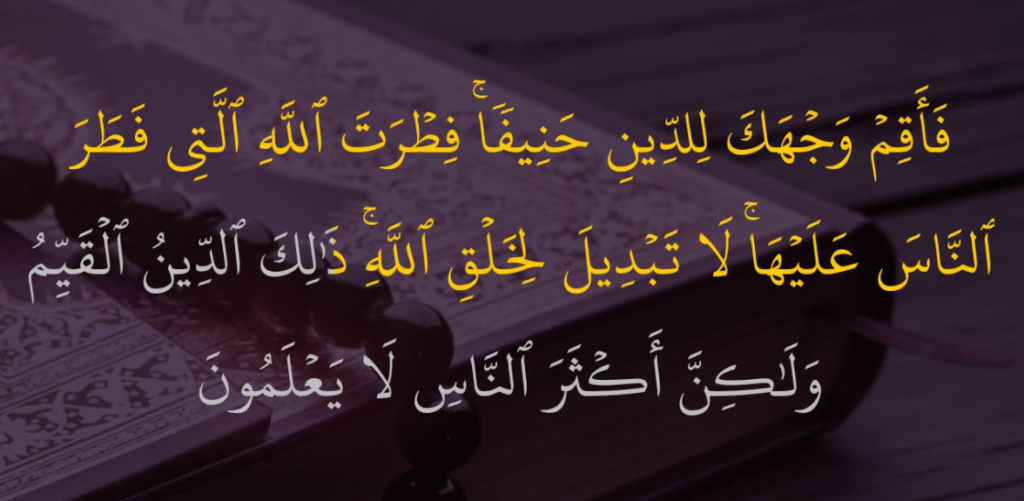 فَأَقِمۡ وَجۡهَكَ لِلدِّينِ حَنِيفٗاۚ فِطۡرَتَ ٱللَّهِ ٱلَّتِي فَطَرَ
ٱلنَّاسَ عَلَيۡهَاۚ لَا تَبۡدِيلَ لِخَلۡقِ ٱللَّهِۚ ذَٰلِكَ ٱلدِّينُ ٱلۡقَيِّمُ
وَلَٰكِنَّ أَكۡثَرَ ٱلنَّاسِ لَا يَعۡلَمُونَ